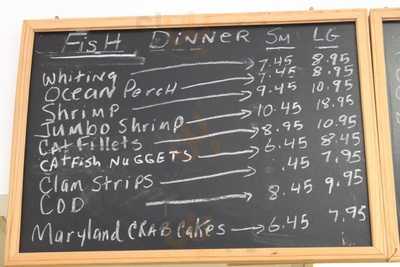 FISH DINNER SM LG
Whiting 7.45 8.95
Ocean Perch 7.45 8.95
Shrimp 9.45 10.95
Jumbo Shrimp 10.45 18.95
CATFillets 8.95 10.95
CATFISH NUGGETS 6.45 8.45
Clam Strips .45 7.95
COD 8.45 9.95
Maryland CRAB Cakes 6.45 7.95